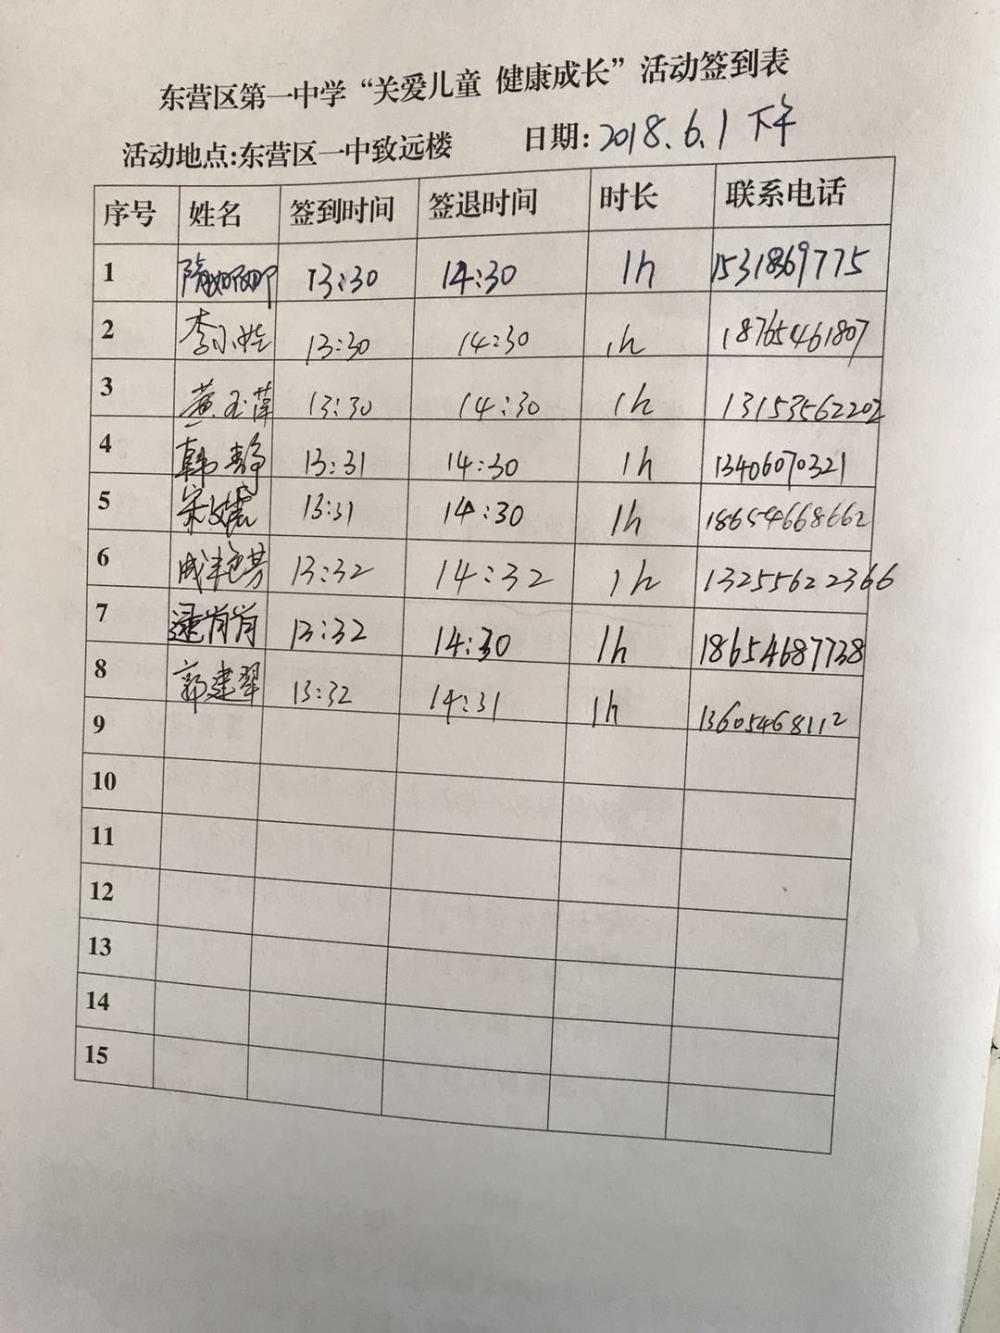 东营区第一中学“关爱儿童 健康成长”活动签到表
活动地点:东营区一中致远楼 日期: 2018.6.1 下午
序号 姓名 签到时间 签退时间 时长 联系电话
1 13:30 14:30 1h 1531869775
2 13:30 14:30 1h 18765461807
3 黄玉萍 13:30 14:30 1h 13153562202
4 韩静 13:31 14:30 1h 13406070321
5 13:31 14:30 1h 18654668662
6 13:32 14:32 1h 13255622366
7 逯肖肖 13:32 14:30 1h 18654687738
8 郭建翠 13:32 14:31 1h 13605468112
9
10
11
12
13
14
15